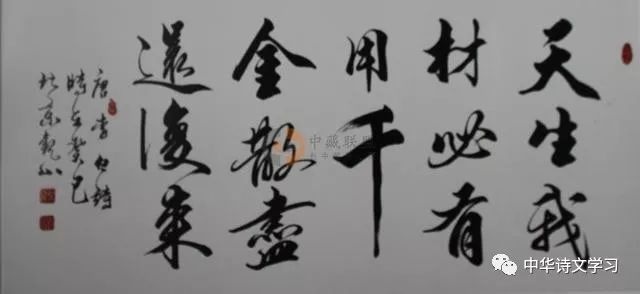 天生我
材必有
用千
金散盡
還復来
唐李白詩
時在癸巳
中藏联盟
中华诗文学习